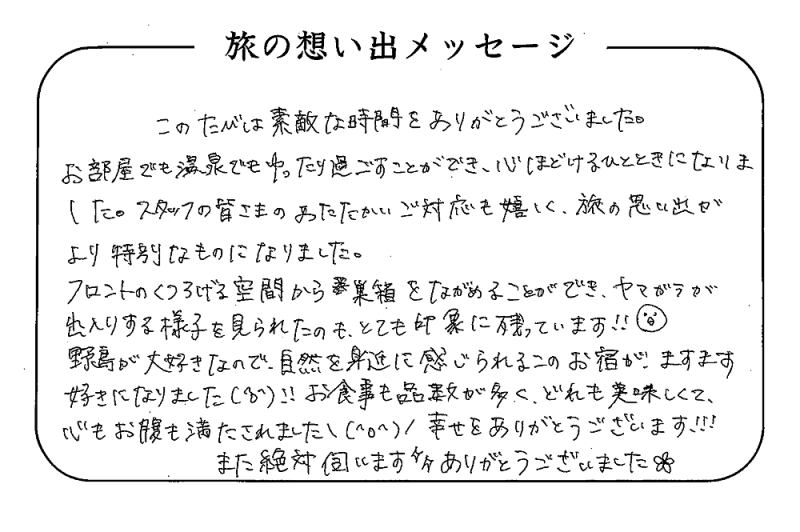 旅の想い出メッセージ
このたびは素敵な時間をありがとうございました。
お部屋でも温泉でもゆったり過ごすことができ、心ほどけるひとときになりま
した。スタッフの皆さまのあたたかいご対応も嬉しく、旅の思い出が
より特別なものになりました。
フロントのくつろげる空間から巣箱をながめることができ、ヤマガラが
出入りする様子を見られたのも、とても印象に残っています!!
野鳥が大好きなので、自然を身近に感じられるこのお宿が、ますます
好きになりました(^^)!! お食事も品数が多く、どれも美味しくて、
心もお腹も満たされました\(^o^)/ 幸せをありがとうございます!!!
また絶対 伺います ありがとうございました